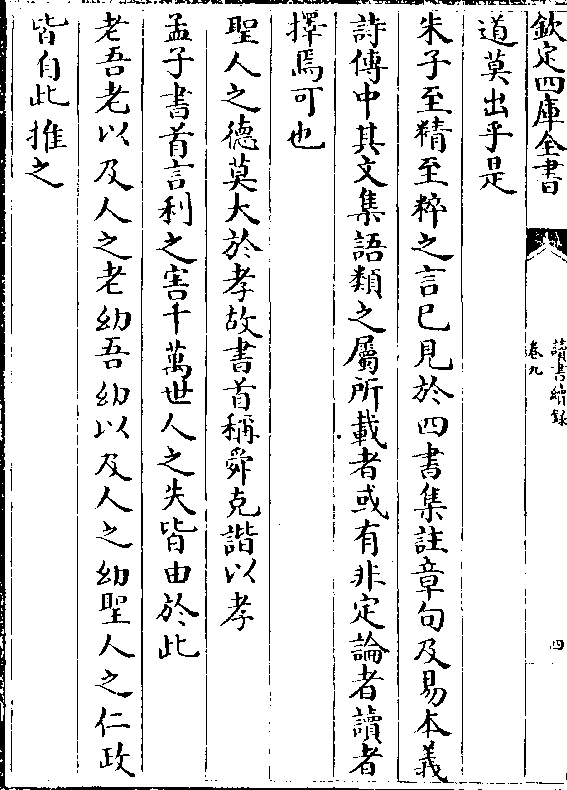 欽定四庫全書
讀書續錄
卷九
四
道莫出乎是
朱子至精至粹之言已見於四書集註章句及易本義
詩傳中其文集語類之屬所載者或有非定論者讀者
擇焉可也
聖人之德莫大於孝故書首稱舜克諧以孝
孟子書首言利之害千萬世人之失皆由於此
老吾老以及人之老幼吾幼以及人之幼聖人之仁政
皆自此推之